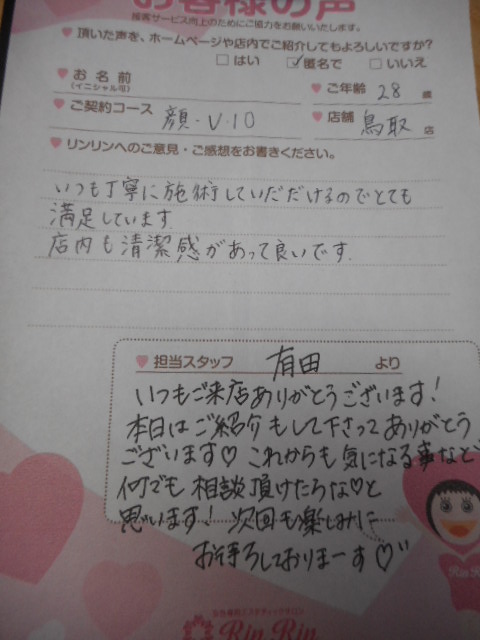 お客様の声
接客サービス向上のためにご協力をお願いいたします。
♥ 頂いた声を、ホームページや店内でご紹介してもよろしいですか?
□ はい ☑ 匿名で □ いいえ
♥ お名前
(イニシャル可)
♥ ご年齢 28 歳
♥ ご契約コース 顔・V・10
♥ 店舗 鳥取 店
♥ リンリンへのご意見・ご感想をお書きください。
いつも丁寧に施術していだだけるのでとても
満足しています.
店内も清潔感があって良いです.
♥ 担当スタッフ 有田 より
いつもご来店ありがとうございます!
本日はご紹介もして下さってありがとう
ございます♡ これからも気になる事など
何でも相談頂けたらな♡と
思います! 次回も楽しみに
お待ちしておりまーす♡
女性専用エステティックサロン
Rin Rin